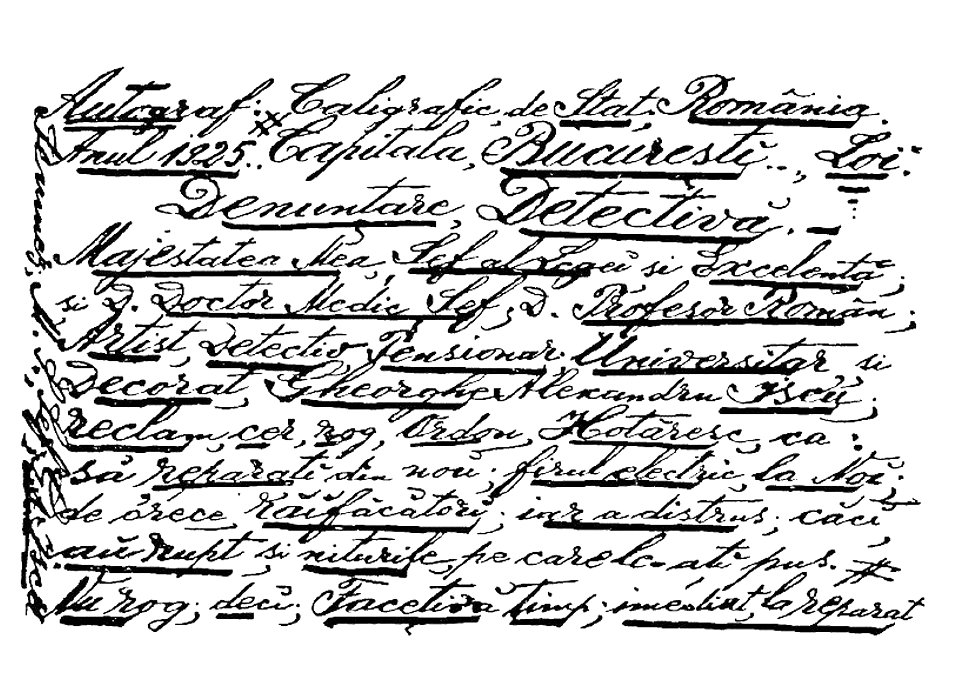 Autograf: Caligrafic, de Stat. România.
Anul 1925. Capitala, Bucuresti..., Loi:
Denuntare, Detectivă. —
Majestatea Mea, Sef al Legei si Excelentă;
si D. Doctor Medic, Sef, D. Profesor Român;
Artist, Detectiv, Pensionar. Universitar si
Decorat, Gheorghe Alexandru Iscu;
reclam, cer, rog, Ordon, Hotăresc, ca:
să reparati din nou; firul electric, la Noi;
de órece, răifăcătorii; iar a distrus; căci
au rupt si niturile, pe care le-ati pus. #
Vu rog; deci; Facetivă timp; imediat, la reparat